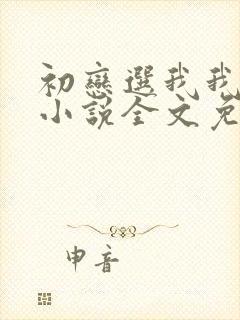 初戀選我我
小說全文免
申音